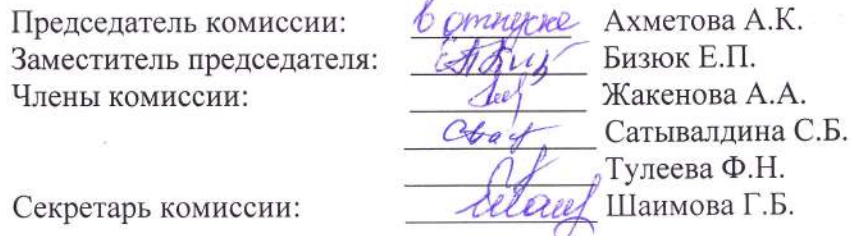 Председатель комиссии: в отпуске Ахметова А.К.
Заместитель председателя: Бизюк Е.П.
Члены комиссии: Жакенова А.А.
Сатывалдина С.Б.
Тулеева Ф.Н.
Секретарь комиссии: Шаимова Г.Б.